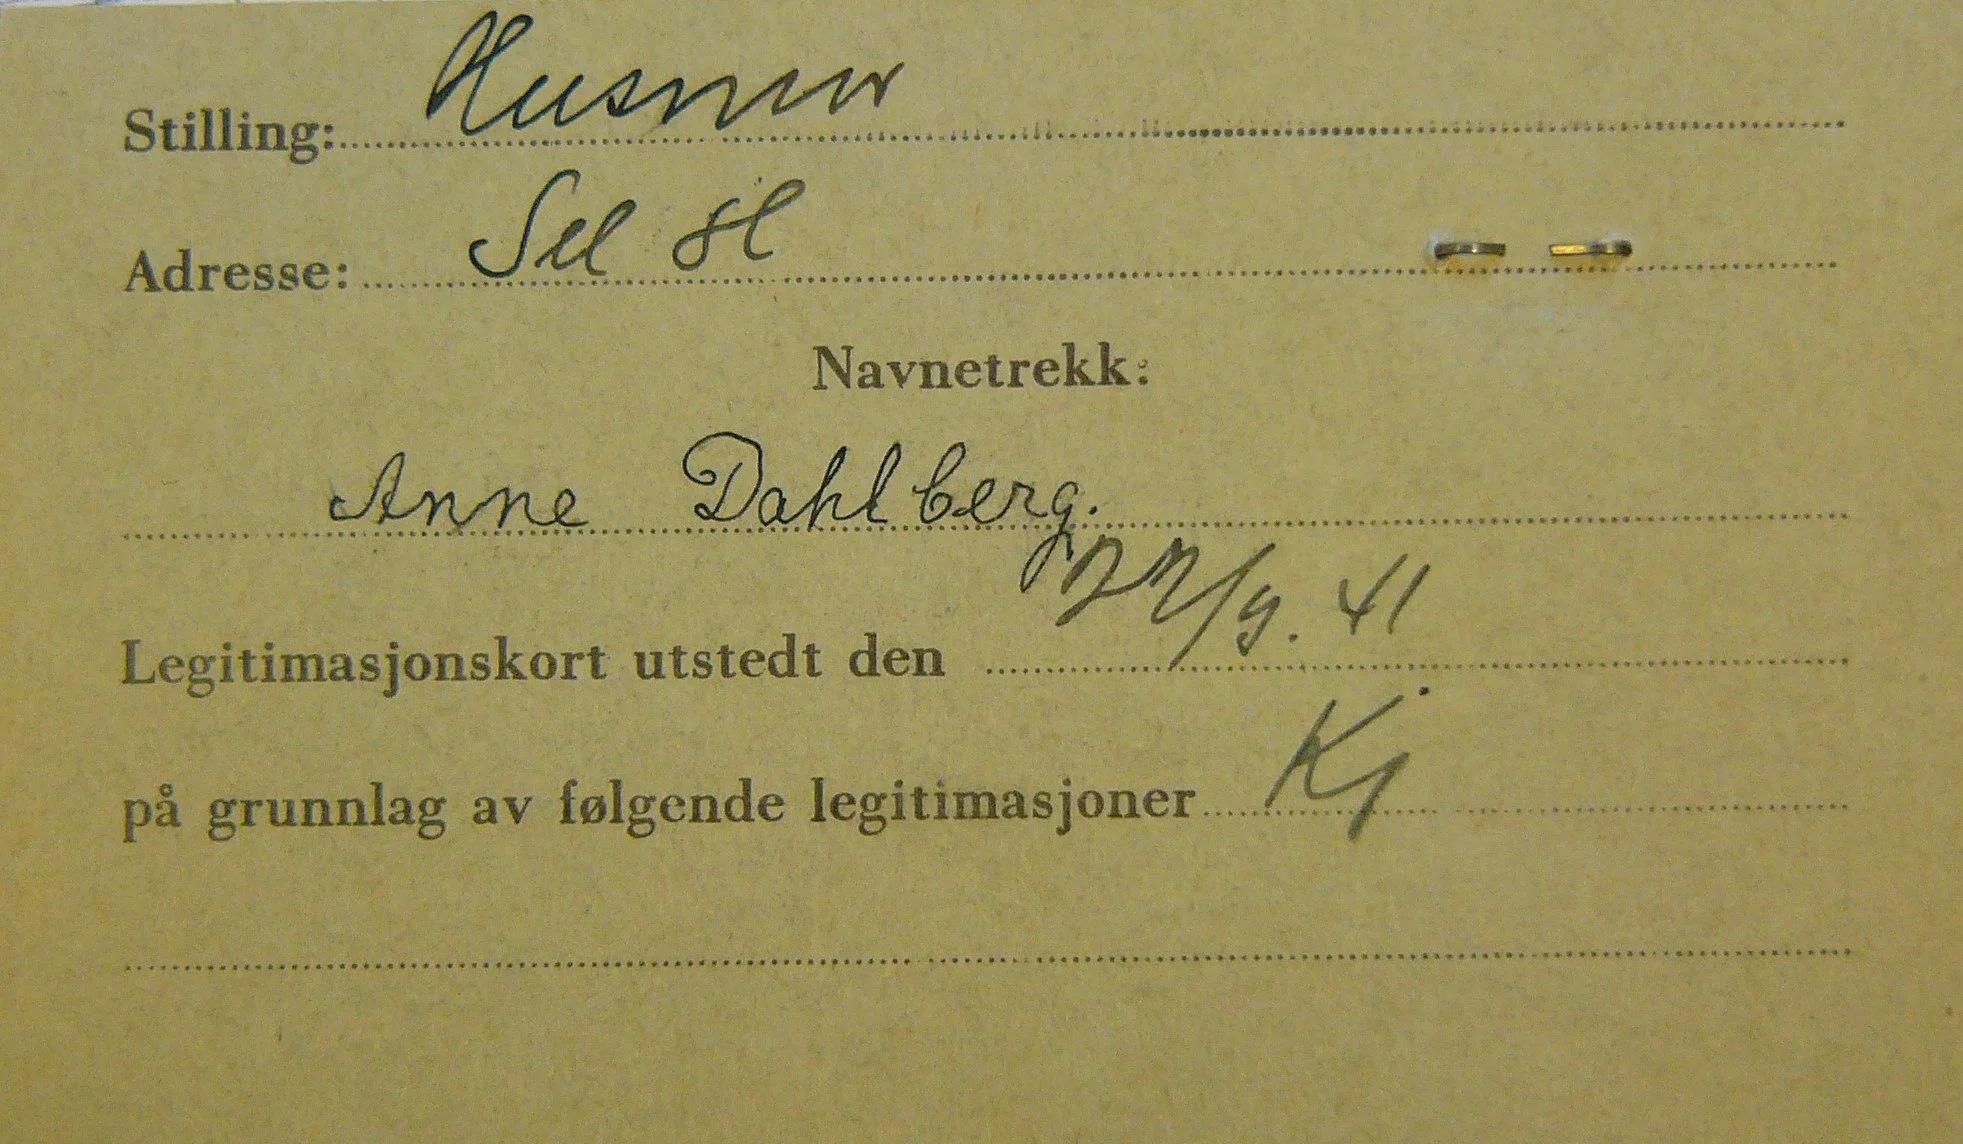 Stilling: Husmor
Adresse: Sel st
Navnetrekk:
Anne Dahlberg.
Legitimasjonskort utstedt den 22/9. 41
på grunnlag av følgende legitimasjoner Kj